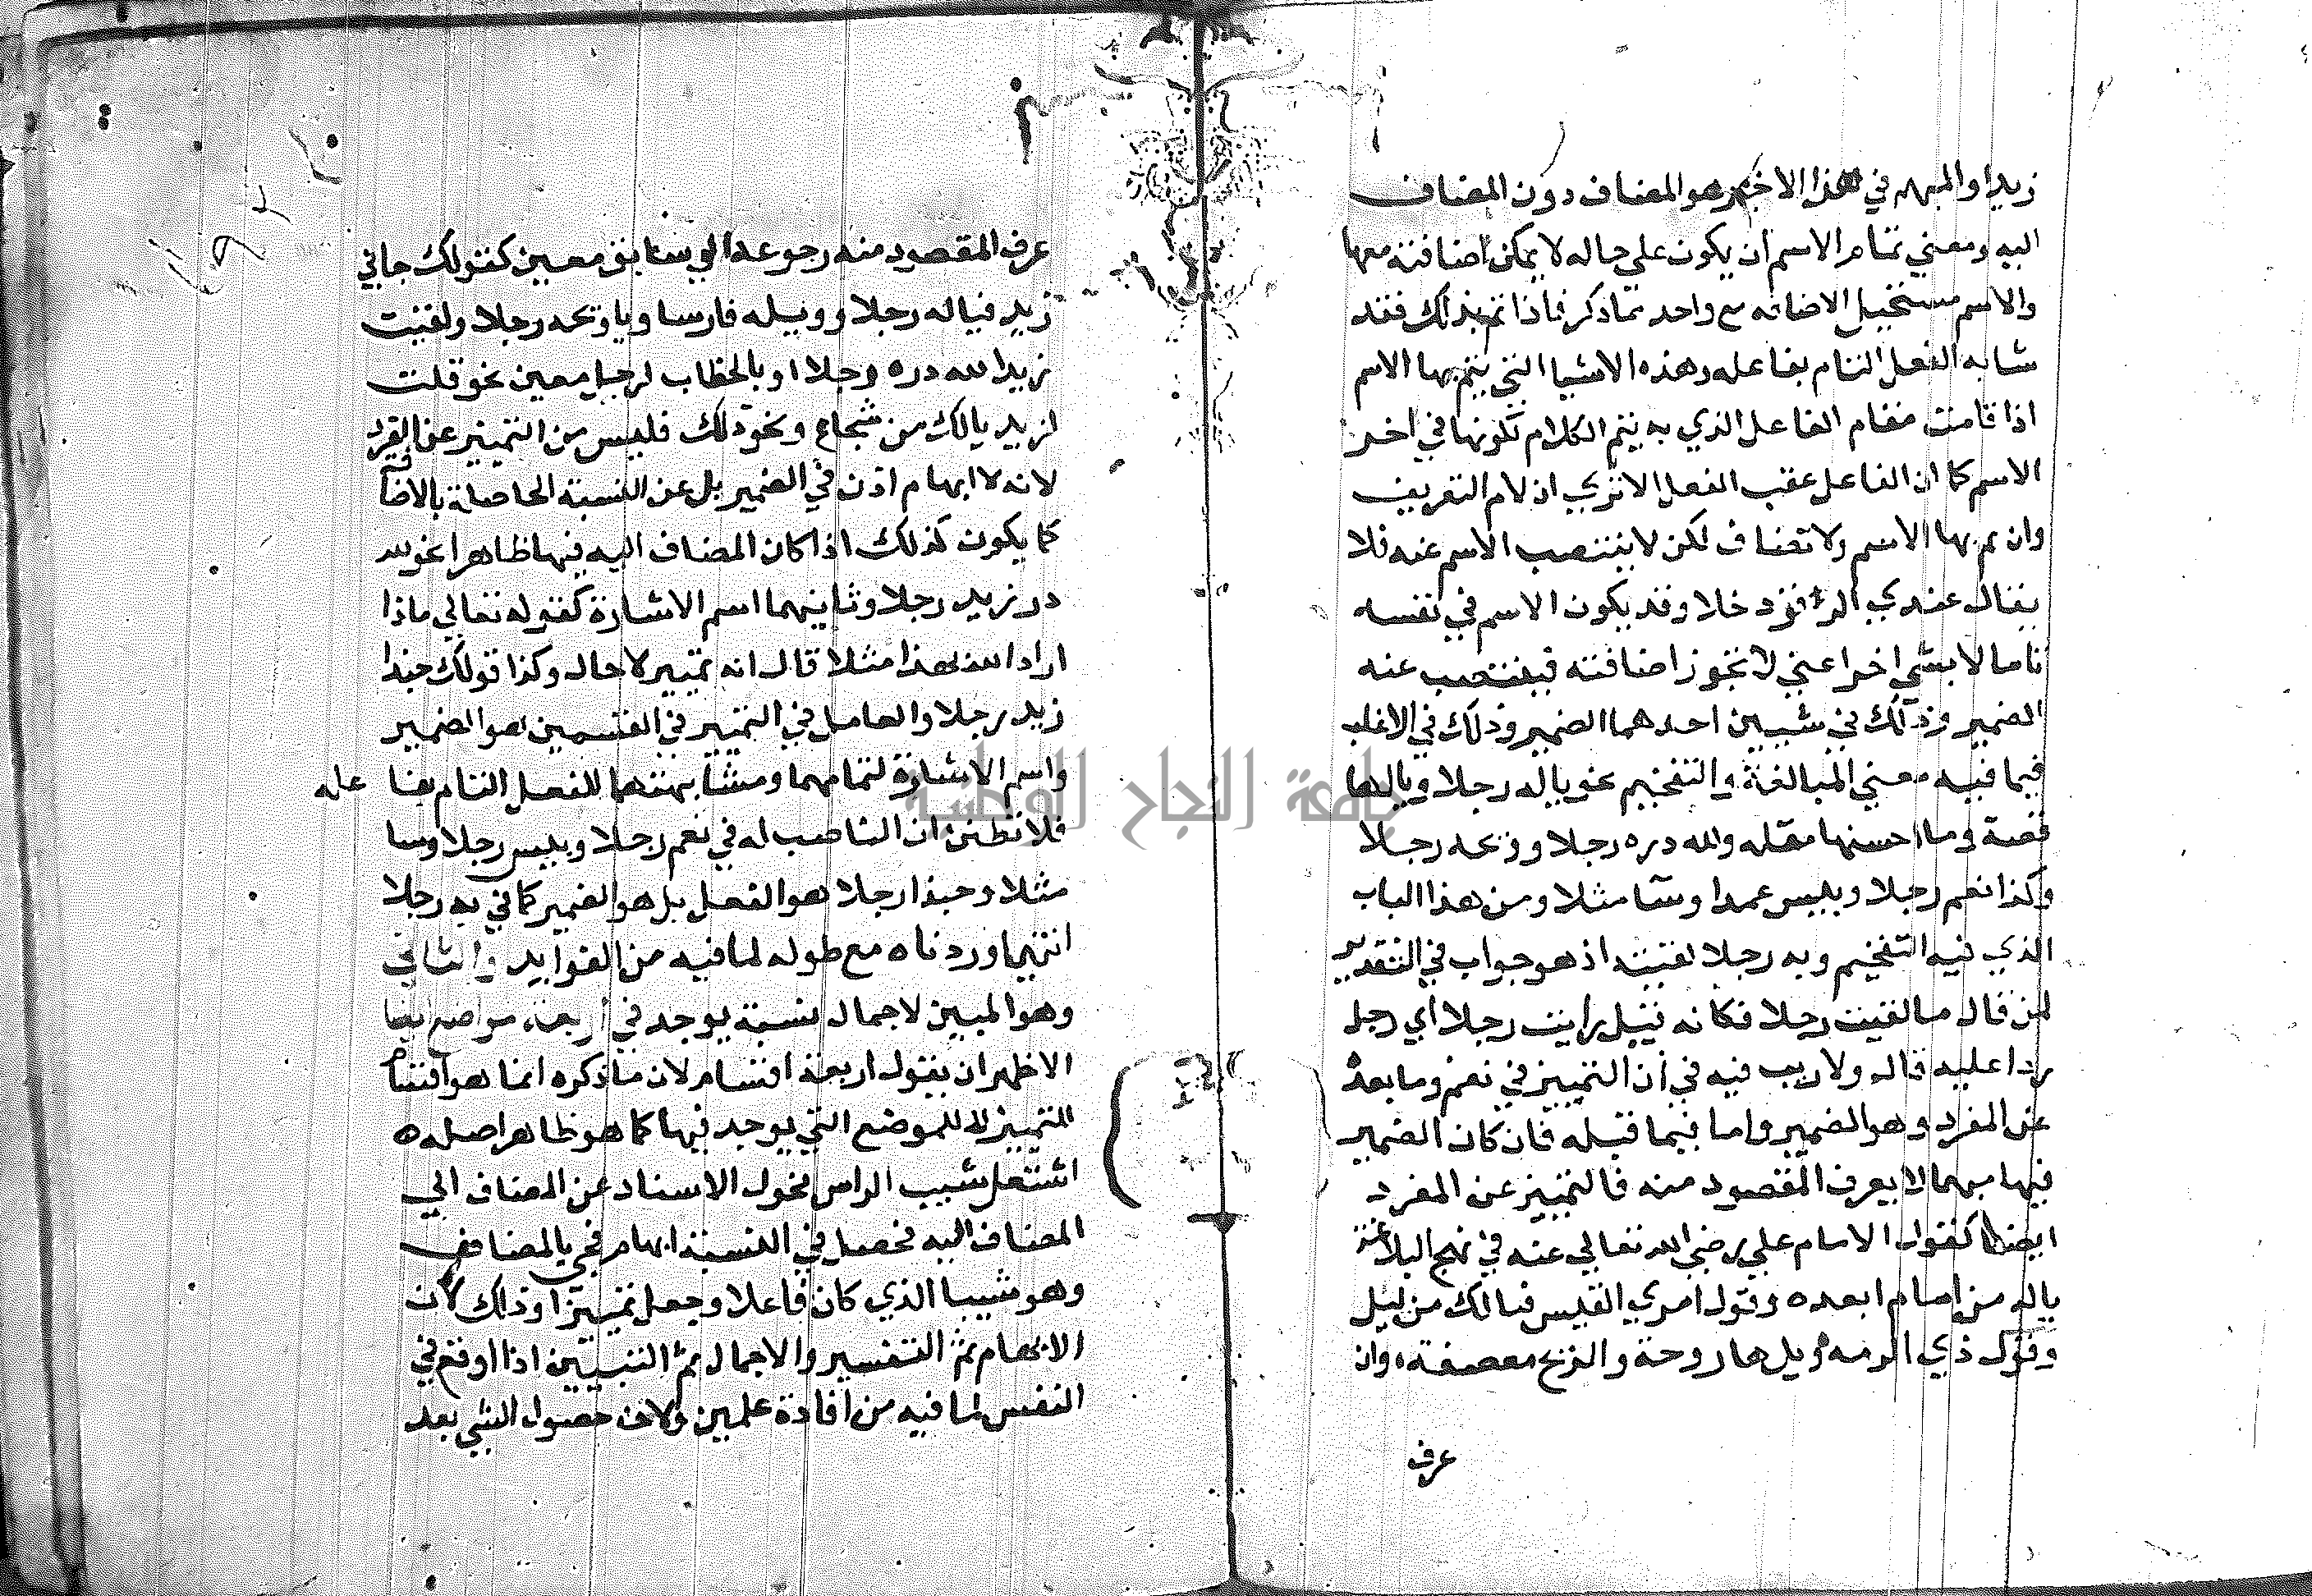 زيدا والمبهم في هذا الاخير هو المضاف دون المضاف
اليه ومعني تمام الاسم ان يكون علي حاله لا يمكن اضافته معها
والاسم مستحيل الاضافه مع واحد مما ذكر فاذا تم بذلك فقد
شابه الفعل التام بفاعله وهذه الاشيا التي يتم بها الاسم
اذا قامت مقام الفاعل الذي به يتم الكلام لكونها في اخر
الاسم كما ان الفاعل عقب الفعل الا تري ان لام التعريف
وان تم بها الاسم ولا تضاف لكن لا ينتصب الاسم عنه فلا
يقال عندي الراقود خلا وقد يكون الاسم في نفسه
تاما لا بشي اخر اعني لا تجوز اضافته فينتصب عنه
الضمير وذلك في شييين احدهما الضمير وذلك في الاغلب
فيما فيه معني المبالغة والتفخيم نحو ياله رجلا ويالها
قصة وما احسنها مقله ولله دره رجلا وويحه رجلا
وكذا نعم رجلا وبييس عمدا وسا مثلا ومن هذا الباب
الذي فيه التفخيم وبه رجلا لقيته اذ هو جواب في التقدير
لمن قال ما لقيت رجلا فكانه قيل رايت رجلا اي رجل
ردا عليه قال ولا ريب فيه في ان التمييز في نعم وما بعده
عن المفرد وهو الضمير واما فيما قبله فان كان الضمير
فيها مبهما لا يعرف المقصود منه فالتمييز عن المفرد
ايضا كقول الامام علي رضي الله تعالي عنه في نهج البلاغة
ياله من اماما ابعده وقول امري القيس فيالك من ليل
وقول ذي الرمه ويل ها روحة والريح معصفة وان
عرف
عرف المقصود منه رجوعه الي سابق معين كقولك جاني
زيد فياله رجلا وويله فارسا ويا ويحه رجلا ولقيت
زيدا لله دره رجلا او بالخطاب لرجل معين نحو قلت
لزيد يالك من شجاع ونحو ذلك فليس من التمييز عن المفرد
لانه لا ابهام اذن في الضمير بل عن النسبة الحاصلة بالاضافة
كما يكون كذلك اذا كان المضاف اليه فيها ظاهرا نحو لله
در زيد رجلا وثانيهما اسم الاشارة كقوله تعالي ماذا
اراد الله بهذا مثلا قال انه تمييز لا حال وكذا قولك حبذا
زيد رجلا والعامل في التمييز في القسمين هو الضمير
واسم الاشارة لتمامهما ومشابهتهما للفعل التام بفا عله
فلا تظنن ان الناصب له في نعم رجلا وبييس رجلا وسا
مثلا وحبذا رجلا هو الفعل بل هو الضمير كما في به رجلا
انتهي اوردناه مع طوله لما فيه من الفوايد والثاني
وهو المبين لاجمال نسبة يوجد في اربعة مواضع
الاظهر ان يقول اربعة اقسام لان ما ذكره انما هو اقسام
التمييز لا للموضع التي يوجد فيها كما هو ظاهر اصله
اشتعل شيب الراس فحول الاسناد عن المضاف الي
المضاف اليه فحصل في النسبة ابهام فجي بالمضاف
وهو شيبا الذي كان فاعلا وجعل تمييزا وذلك لان
الابهام ثم التفسير والاجمال ثم التبيين اذا اوقع في
النفس لما فيه من افادة علمين ولان حصول الشي بعد